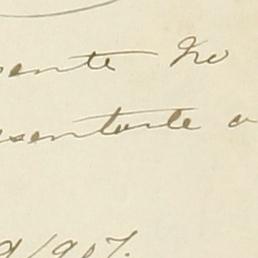 sente No
esentarle a
9/907.